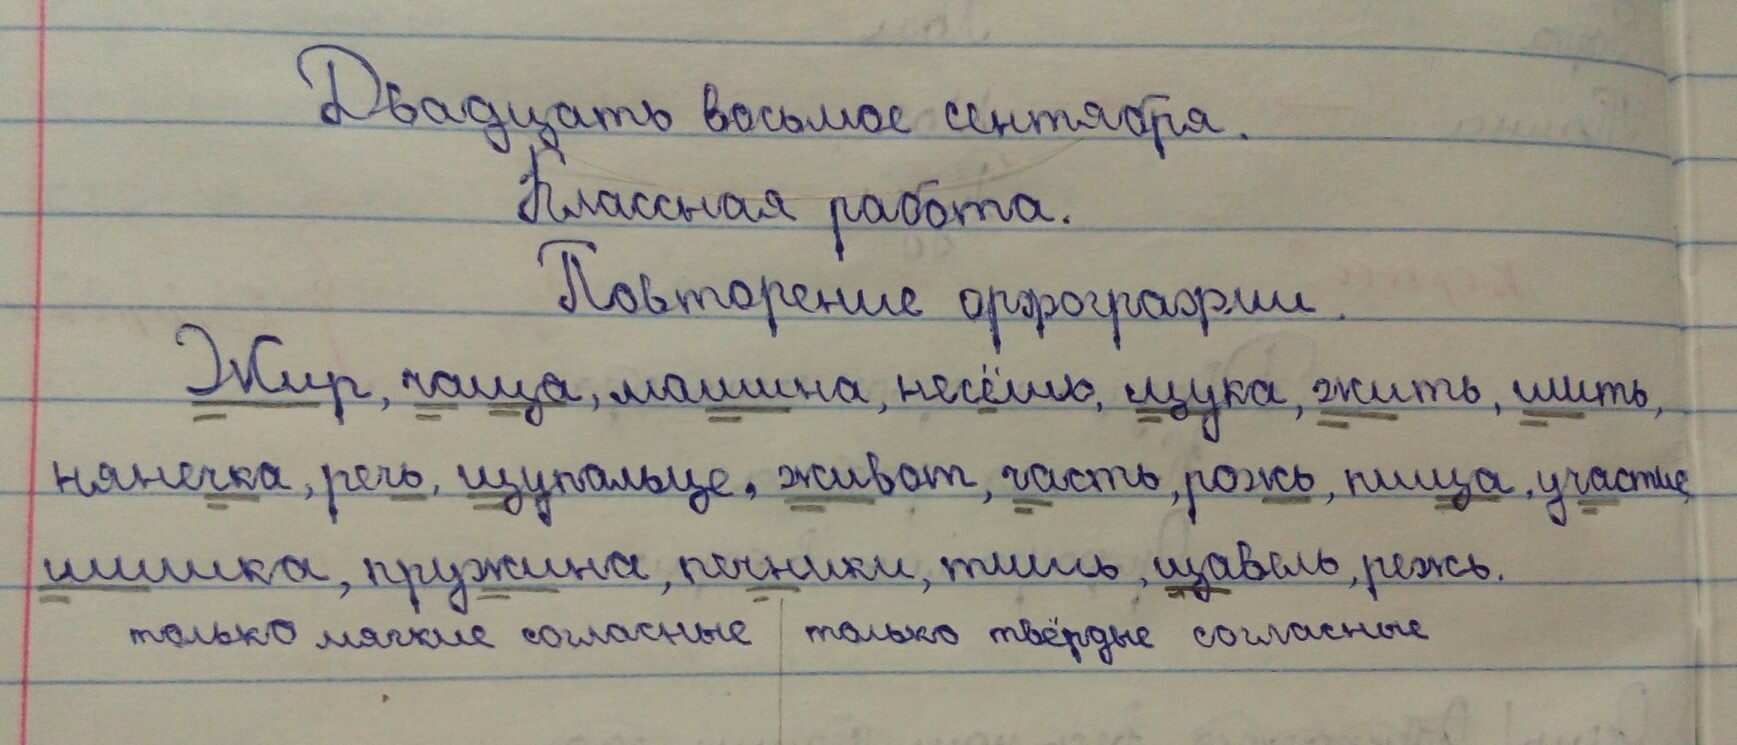 Двадцать восьмое сентября.
Классная работа.
Повторение орфографии.
Жир, чаща, машина, несёшь, щука, жить, шить,
нянечка, речь, щупальце, живот, часть, рожь, пища, участие
шишка, пружина, печники, тишь, щавель, режь.
только мягкие согласные только твёрдые согласные